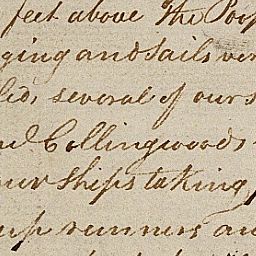 feet above The Poop
ging and sails ver
led, several of our s
nd Collingwoods
our Ships taking
up runners an